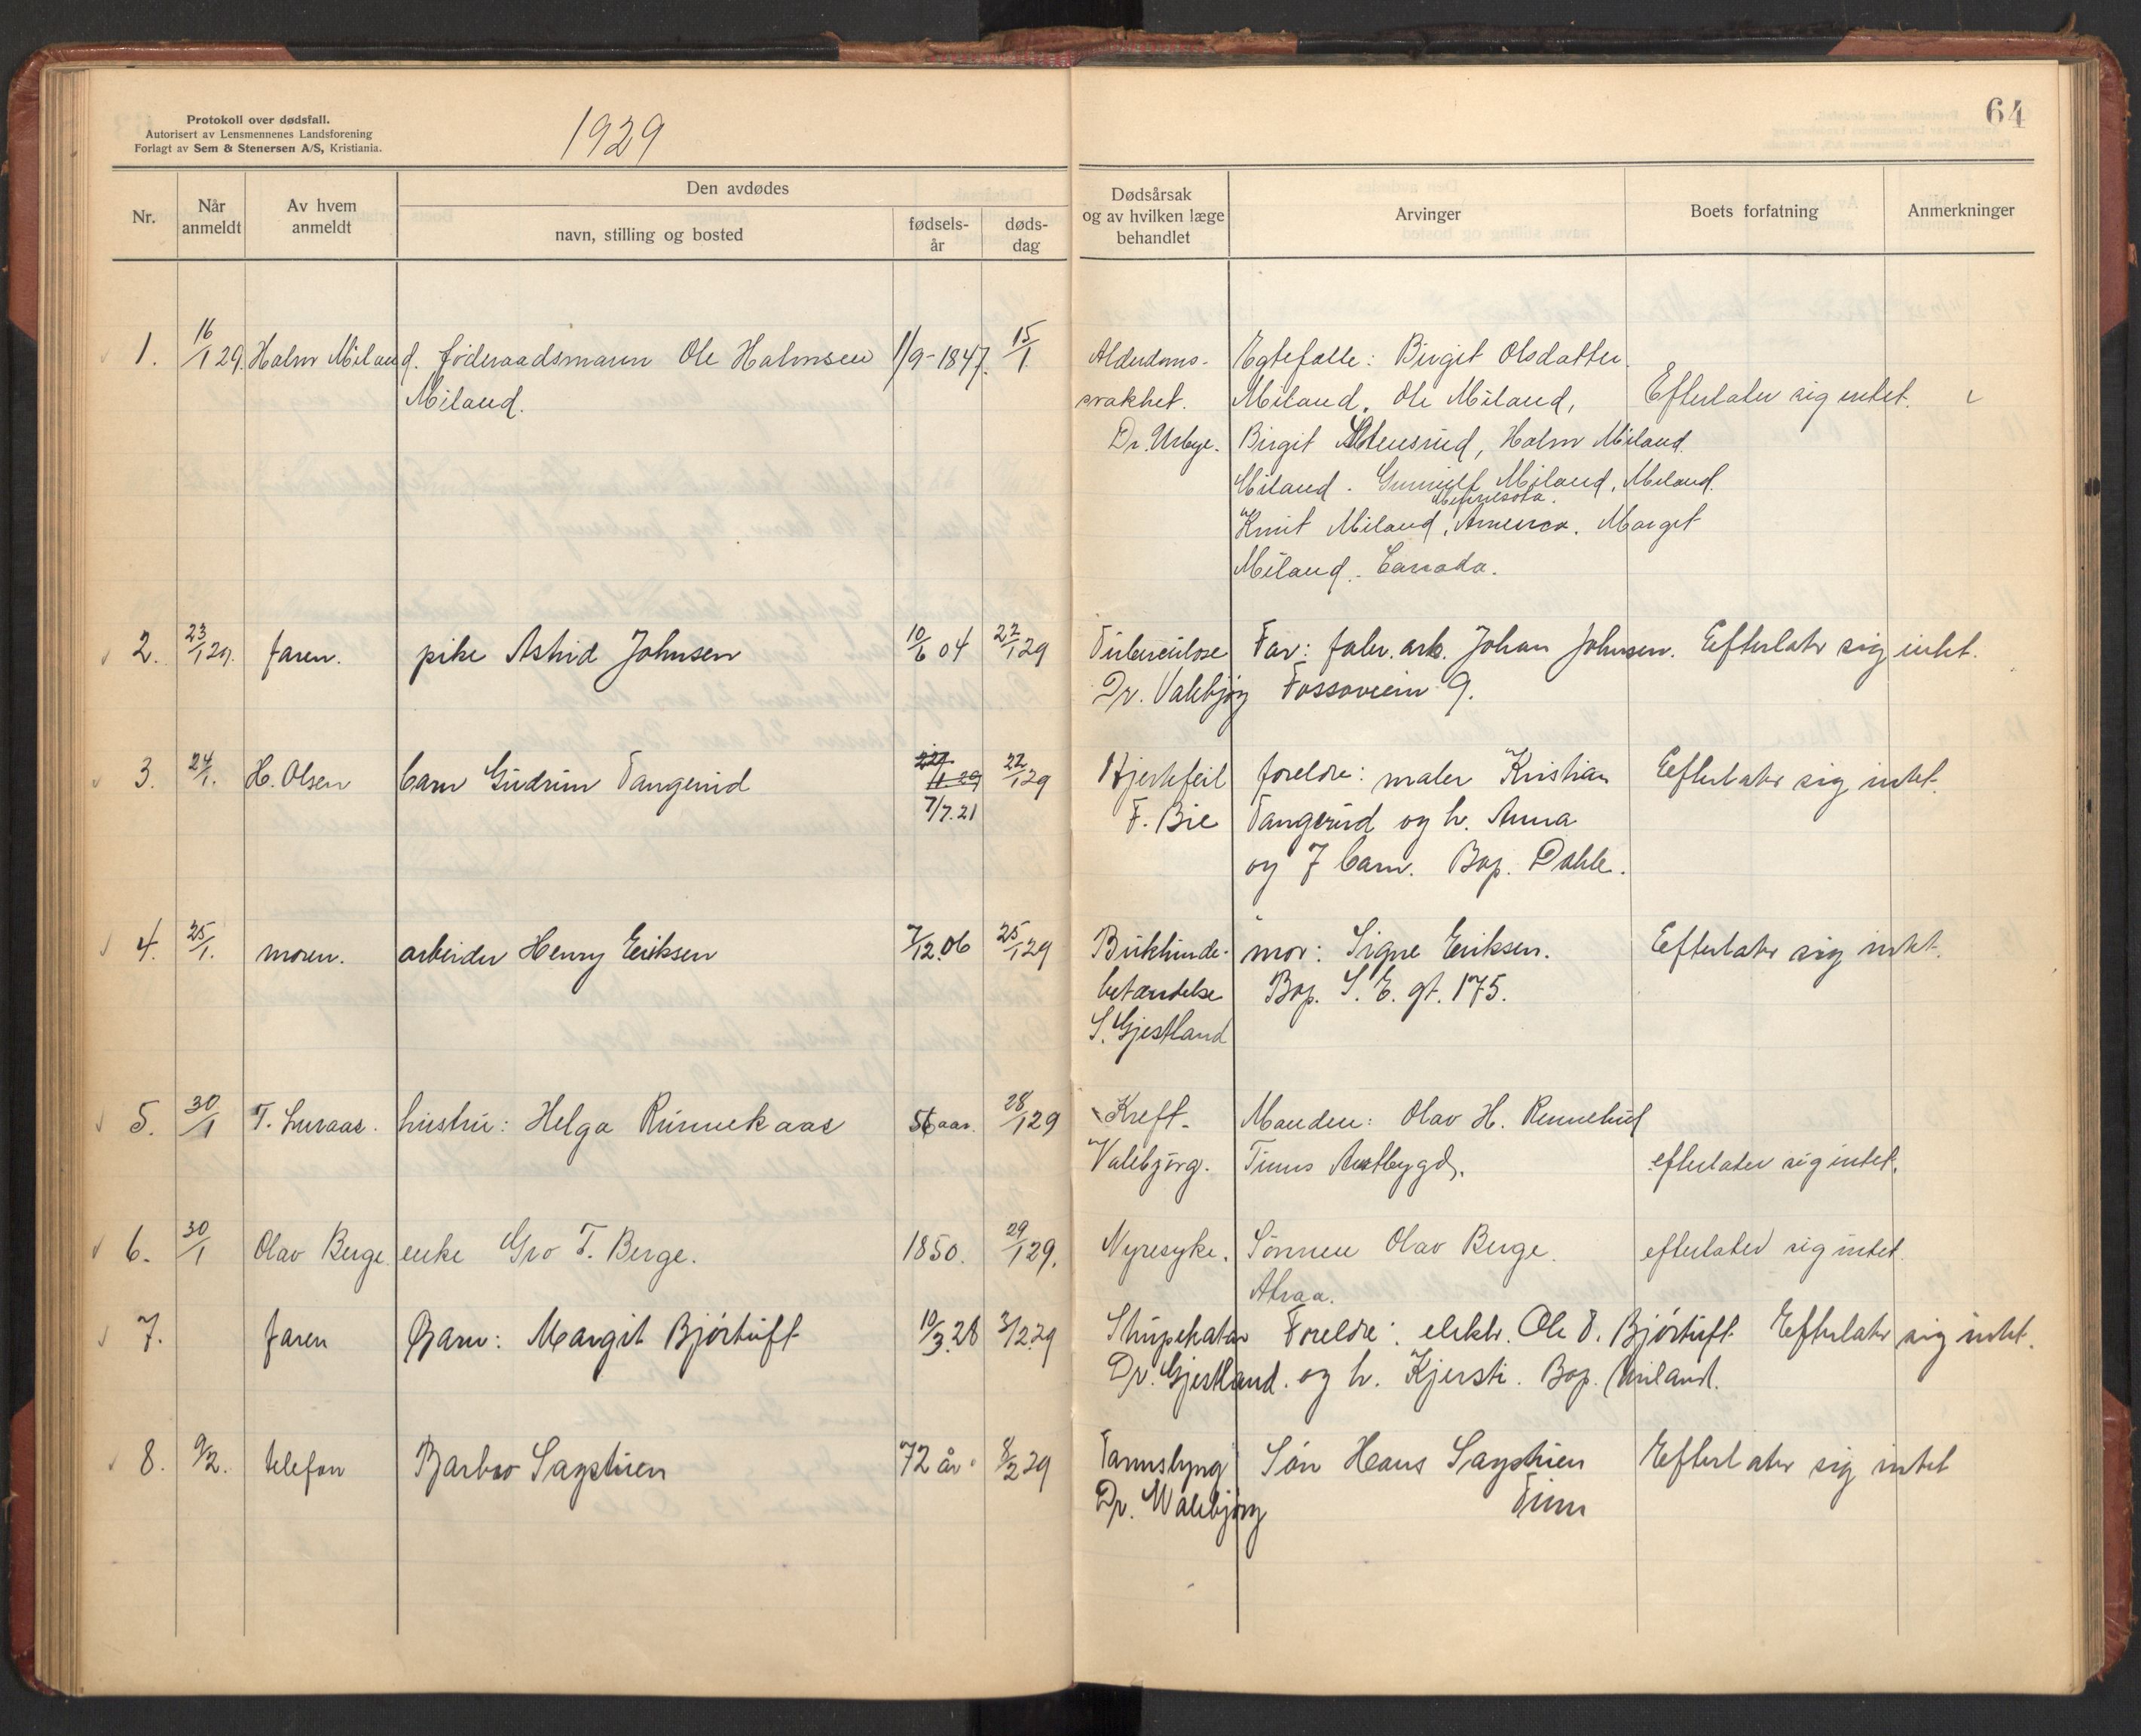 Protokoll over dødsfall.
Autorisert av Lensmennenes Landsforening
Forlagt av Sem & Stenersen A/S, Kristiania.
1929
64
Nr.
Når anmeldt
Av hvem anmeldt
Den avdødes
navn, stilling og bosted
fødselsår
dødsdag
Dødsårsak og av hvilken læge behandlet
Arvinger
Boets forfatning
Anmerkninger
1. 16/1 29. Halvor Miland.føderaadsmann Ole Halvorsen 1/9-1847. 15/1 Alderdoms- Egtefælle: Birgit Olsdatter
Miland. svakhet. Miland. Ole Miland, Efterlater sig intet.
Dr. Urbye. Birgit Stensrud, Halvor Miland.
Miland. Gunnulf Miland, Miland.
Minnesota.
Knut Miland, America. Marget
Miland. Canada.
2. 23/1 29. faren. pike Astrid Johnsen 10/6 04 22/1 29 Tuberculose Far: fabr. arb. Johan Johnsen. Efterlater sig intet.
Dr. Valebjørg Fossoveien 9.
3. 24/1. H. Olsen barn Gudrun Tangerud 22/1 29 Hjertefeil foreldre: maler Kristian Efterlater sig intet.
7/7.21 F. Bie Tangerud og h. Anna
og 7 barn. Bop. Dahle.
4. 25/1. moren. arbeider Henry Eriksen 7/12.06 25/1 29 Bukhinde- mor: Signe Eriksen. Efterlater sig intet.
betændelse Bop. S. E. gt. 175.
S. Gjestland
5. 30/1 T. Luraas. hustru: Helga Runnekaas 56 aar. 28/1 29 Kreft. Manden: Olav H.
Valebjørg. Tinns Austbygd. efterlater sig intet.
6. 30/1 Olav Berge. enke Gro T. Berge. 1850. 29/1 29. Nyresyke. Sønnen Olav Berge. efterlater sig intet.
Atraa.
7. faren Barn: Margit Bjørtuft 10/3.28 3/2.29 Strupekatar Foreldre: elektr. Ole T. Bjørtuft Efterlater sig intet.
Dr. Gjestland. og h. Kjersti. Bop. Miland.
8. 9/2. telefon Barbro Sagstuen 72 år 8/2 29 Tarmslyng Søn Hans Sagstuen Efterlater sig intet
Dr. Walebjørg Tinn